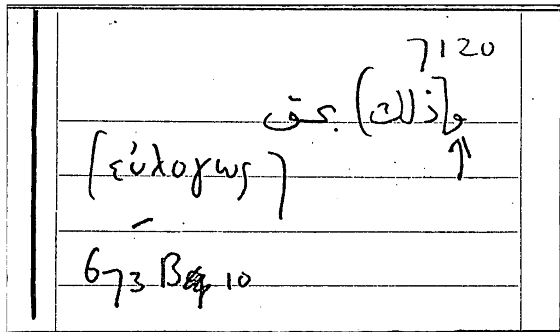 7120
و(ذلك) بحق
[εὐλογως]
673 B 10